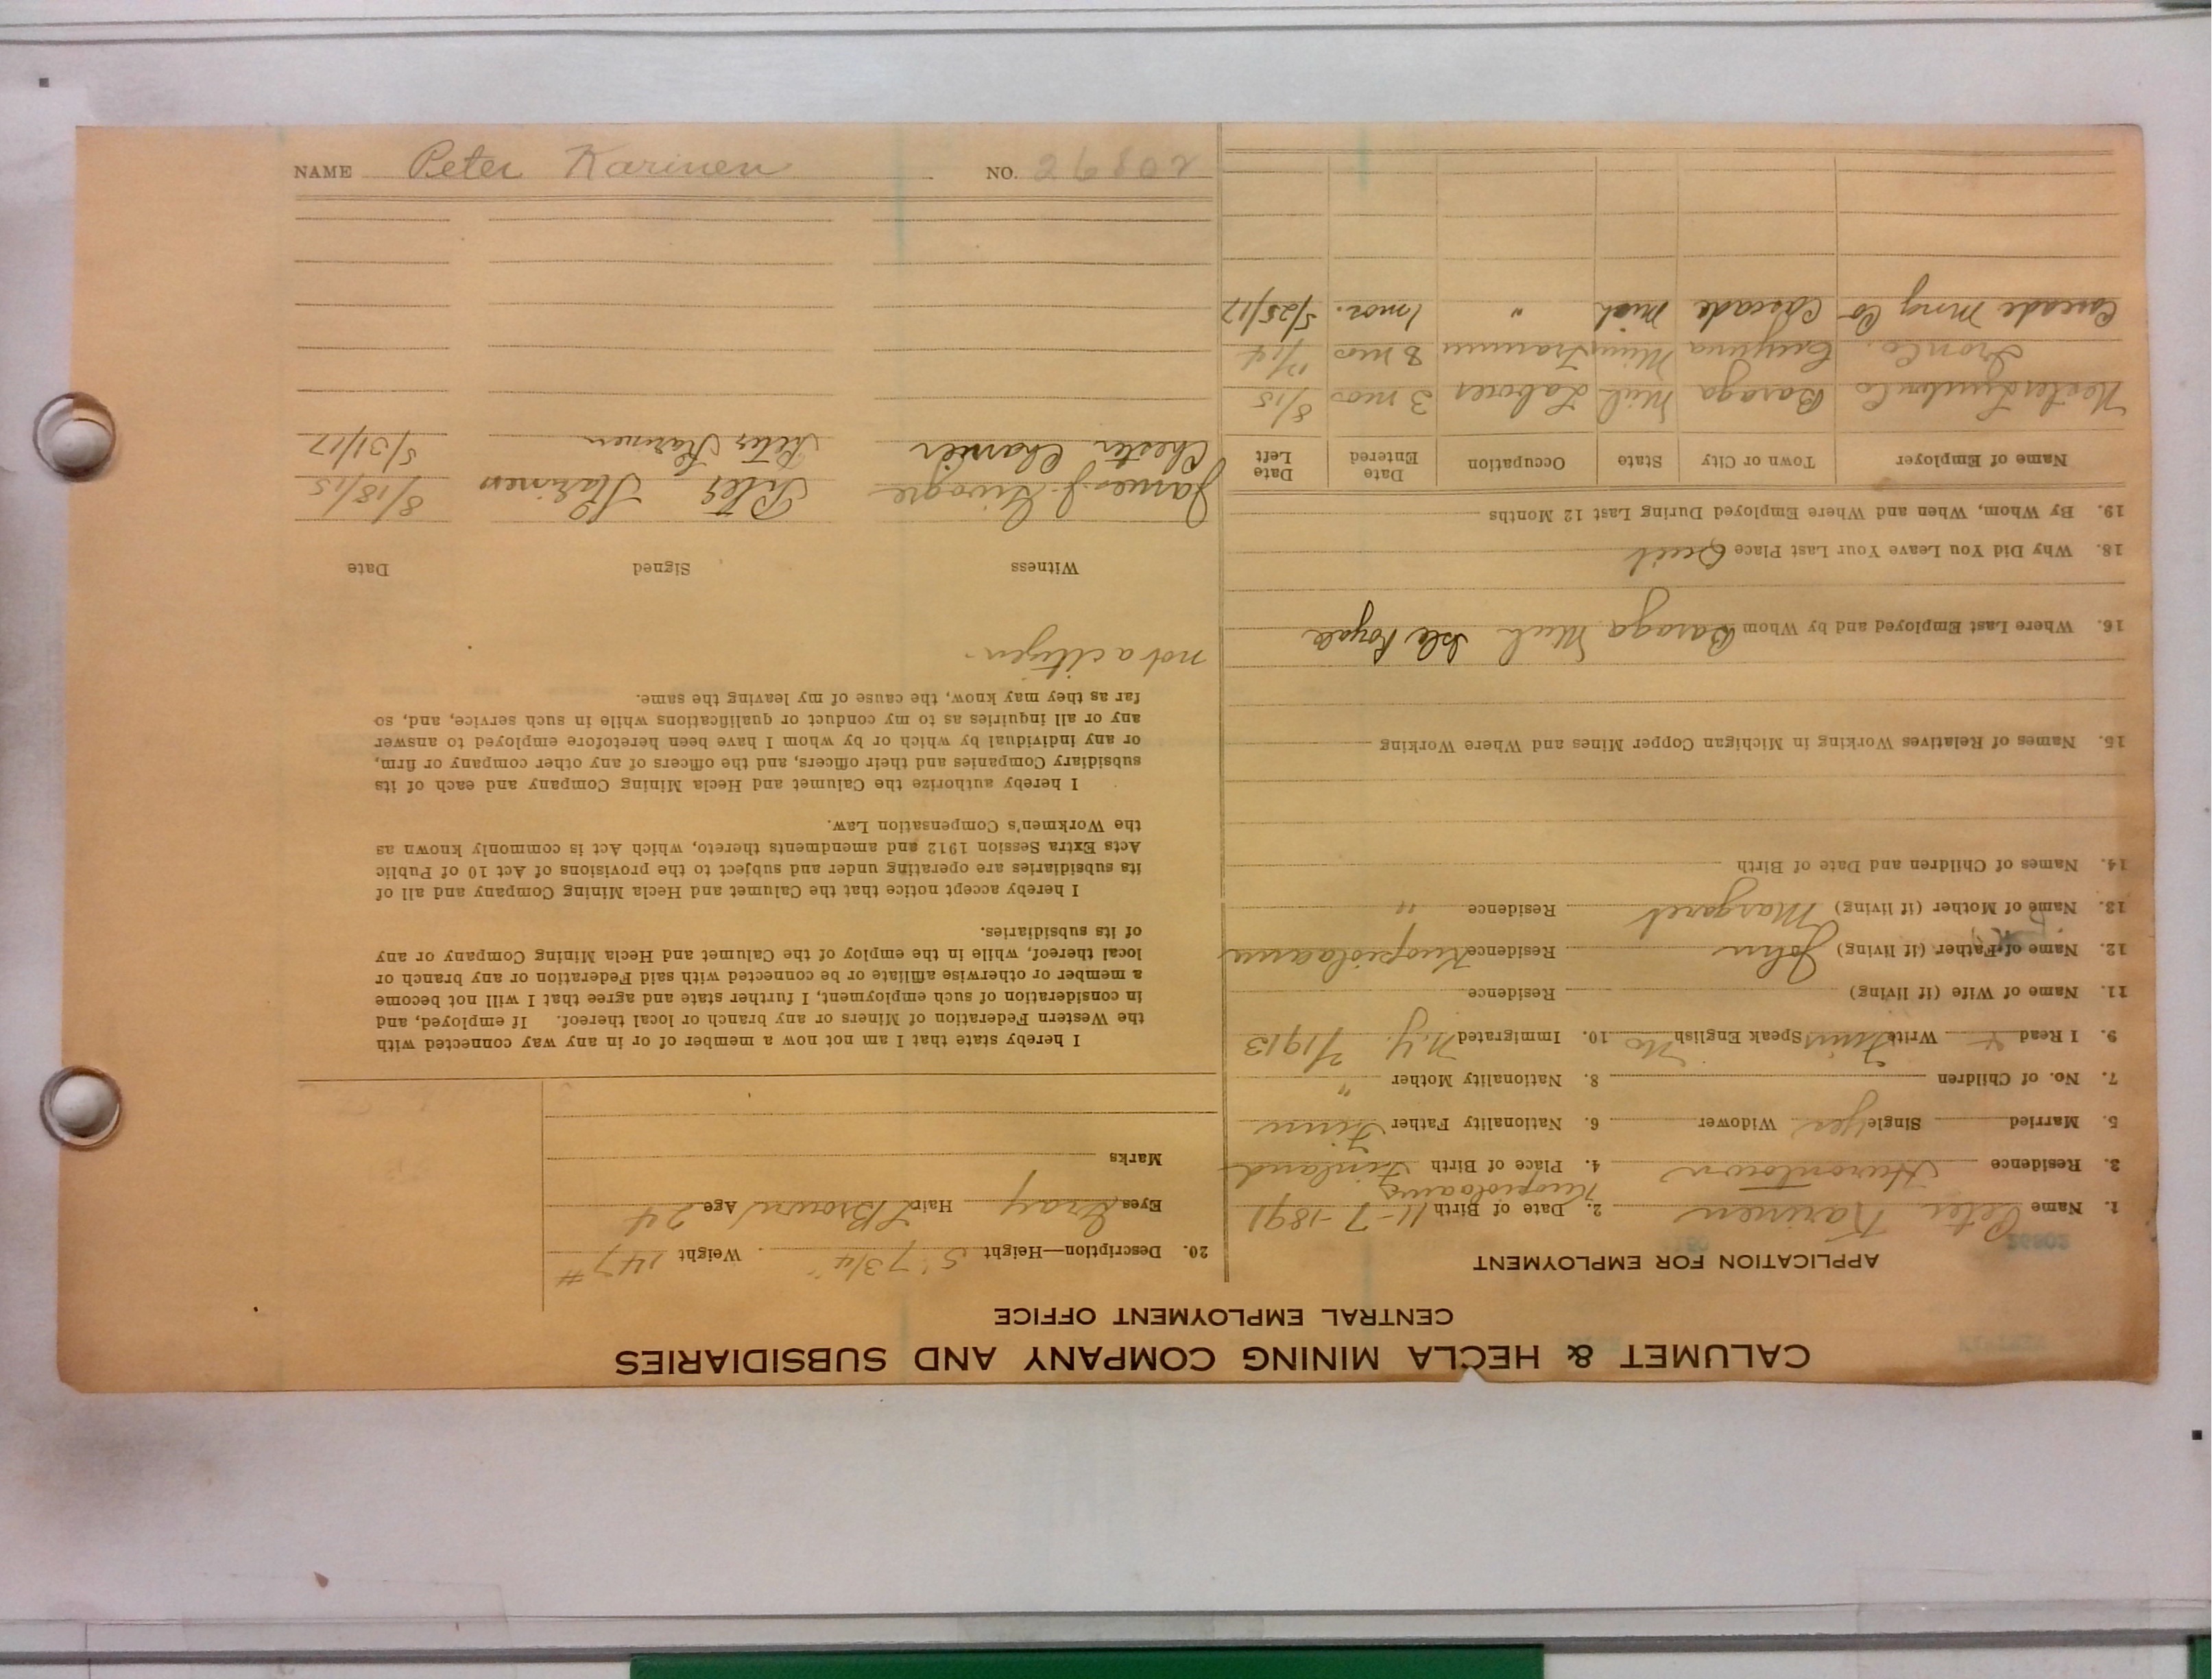 NAME Peter Karinen NO. 26802
CALUMET & HECLA MINING COMPANY AND SUBSIDIARIES
CENTRAL EMPLOYMENT OFFICE
APPLICATION FOR EMPLOYMENT
1. Name Peter Karinen 2. Date of Birth 11-7-1891
3. Residence Hurontown 4. Place of Birth Finland
5. Married Single yes Widower 6. Nationality Father Finn
7. No. of Children 8. Nationality Mother "
9. I Read Write Finn Speak English No 10. Immigrated N.Y. 2/1913
11. Name of Wife (if living) Residence
12. Name of Father (if living) John Residence
13. Name of Mother (if living) Margaret Residence "
14. Names of Children and Date of Birth
15. Names of Relatives Working in Michigan Copper Mines and Where Working
16. Where Last Employed and by Whom Baraga Mich Isle Royale
18. Why Did You Leave Your Last Place Quit
19. By Whom, When and Where Employed During Last 12 Months
Name of Employer Town or City State Occupation Date Entered Date Left
Baraga Mich Laborer 3 mos 8/15
Iron Co. Cuyuna Minn Trammer 8 mos
Cascade Mng Co Cascade Mich " 1 mos. 5/25/17
20. Description—Height 5' 7 3/4" Weight 147 #
Eyes Gray Hair L Brown Age 24
Marks
I hereby state that I am not now a member of or in any way connected with
the Western Federation of Miners or any branch or local thereof. If employed, and
in consideration of such employment, I further state and agree that I will not become
a member or otherwise affiliate or be connected with said Federation or any branch or
local thereof, while in the employ of the Calumet and Hecla Mining Company or any
of its subsidiaries.
I hereby accept notice that the Calumet and Hecla Mining Company and all of
its subsidiaries are operating under and subject to the provisions of Act 10 of Public
Acts Extra Session 1912 and amendments thereto, which Act is commonly known as
the Workmen's Compensation Law.
I hereby authorize the Calumet and Hecla Mining Company and each of its
subsidiary Companies and their officers, and the officers of any other company or firm,
or any individual by which or by whom I have been heretofore employed to answer
any or all inquiries as to my conduct or qualifications while in such service, and, so
far as they may know, the cause of my leaving the same.
not a citizen.
Witness Signed Date
James J. Peter Karinen 8/18/15
Chester Peter Karinen 5/31/17